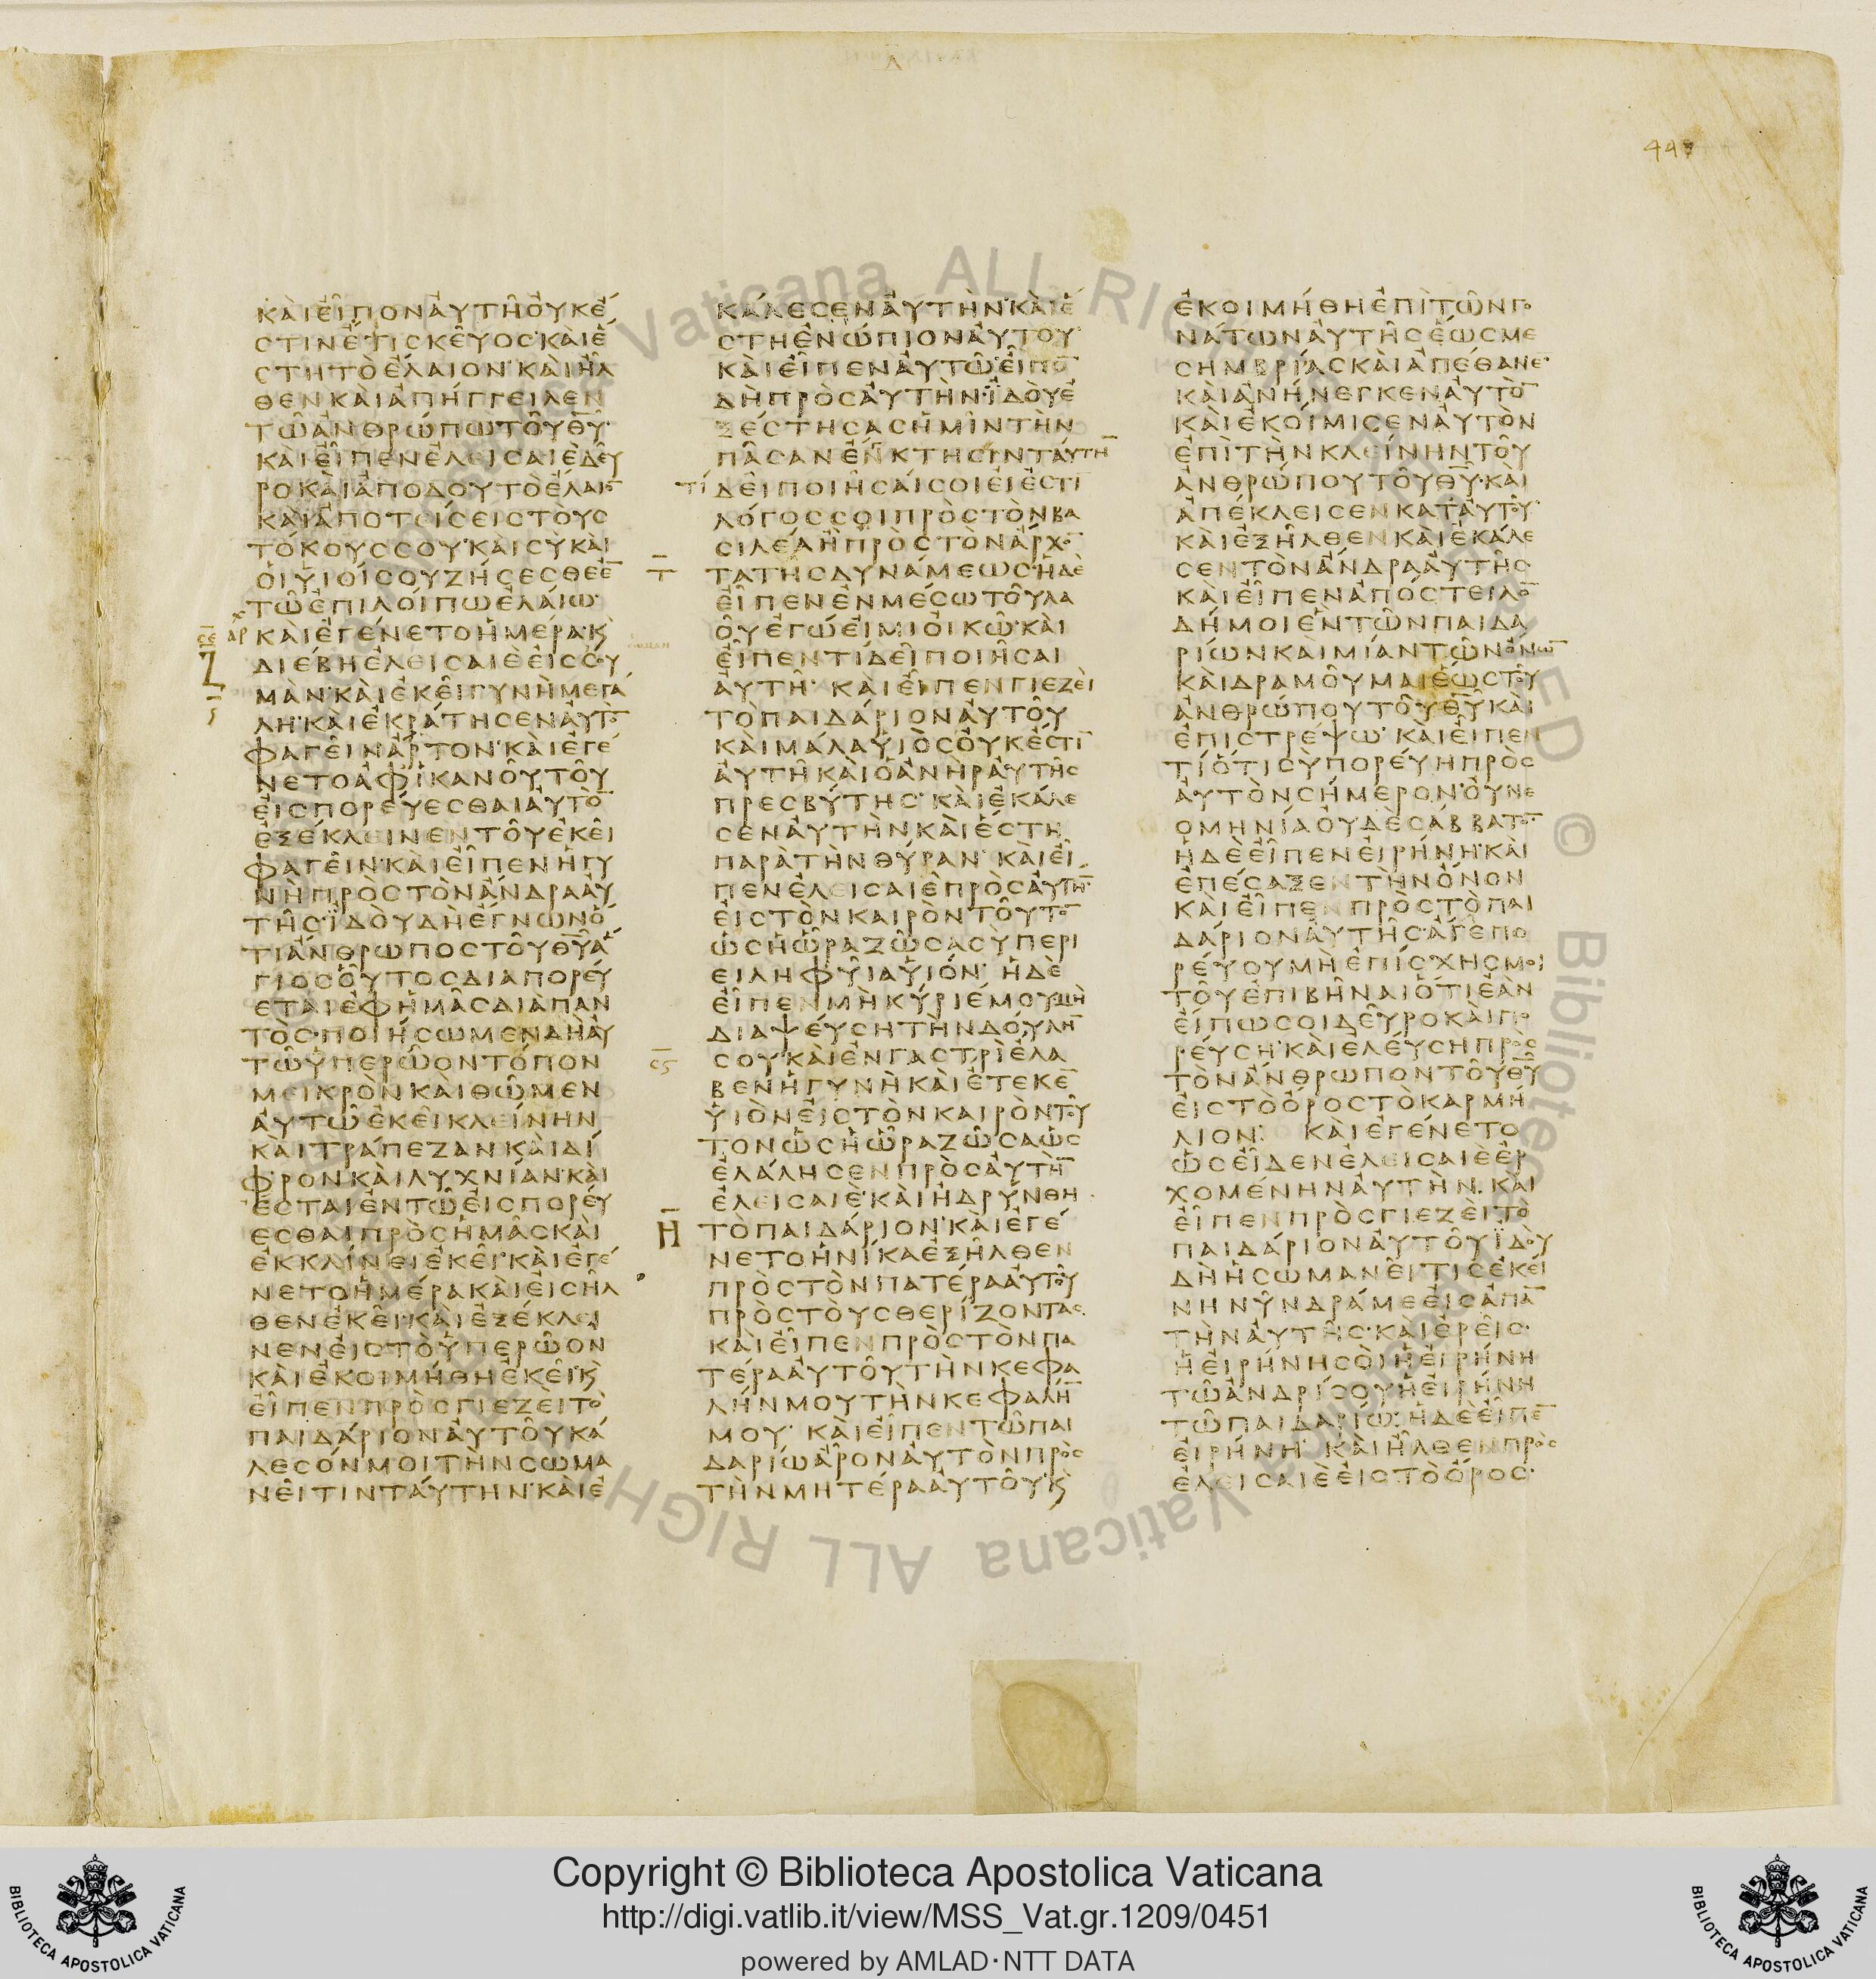 ΚΑΙΕΙΠΟΝΑΥΤΗΟΥΚΕ
ϹΤΙΝΕΤΙϹΚΕΥΟϹ·ΚΑΙΕ
ϹΤΗΤΟΕΛΑΙΟΝ·ΚΑΙΗΛ
ΘΕΝΚΑΙΑΠΗΓΓΕΙΛΕΝ
ΤΩΑΝΘΡΩΠΩΤΟΥΘ̅Υ̅·
ΚΑΙΕΙΠΕΝΕΛΕΙϹΑΙΕΔΕΥ
ΡΟΚΑΙΑΠΟΔΟΥΤΟΕΛΑΙΟ̅
ΚΑΙΑΠΟΤΕΙϹΕΙϹΤΟΥϹ
ΤΟΚΟΥϹϹΟΥ·ΚΑΙϹΥΚΑΙ
ΟΙΥΙΟΙϹΟΥΖΗϹΕϹΘΕΕ̅
ΤΩΕΠΙΛΟΙΠΩΕΛΑΙΩ·
ΚΑΙΕΓΕΝΕΤΟΗΜΕΡΑ·Κ̀
ΔΙΕΒΗΕΛΕΙϹΑΙΕΕΙϹϹΟΥ
ΜΑΝ·ΚΑΙΕΚΕΙΓΥΝΗΜΕΓΑ
ΛΗ·ΚΑΙΕΚΡΑΤΗϹΕΝΑΥΤΟ̅
ΦΑΓΕΙΝΑΡΤΟΝ·ΚΑΙΕΓΕ
ΝΕΤΟΑΦΙΚΑΝΟΥΤΟΥ
ΕΙϹΠΟΡΕΥΕϹΘΑΙΑΥΤΟ̅
ΕΞΕΚΛΕΙΝΕΝΤΟΥΕΚΕΙ
ΦΑΓΕΙΝ·ΚΑΙΕΙΠΕΝΗΓΥ
ΝΗΠΡΟϹΤΟΝΑΝΔΡΑΑΥ
ΤΗϹ·ΪΔΟΥΔΗΕΓΝΩΝΟ
ΤΙΑΝΘΡΩΠΟϹΤΟΥΘ̅Υ̅Α
ΓΙΟϹΟΥΤΟϹΔΙΑΠΟΡΕΥ
ΕΤΑΙΕΦΗΜΑϹΔΙΑΠΑΝ
ΤΟϹ·ΠΟΙΗϹΩΜΕΝΔΗΑΥ
ΤΩΥΠΕΡΩΟΝΤΟΠΟΝ
ΜΕΙΚΡΟΝΚΑΙΘΩΜΕΝ
ΑΥΤΩΕΚΕΙΚΛΕΙΝΗΝ
ΚΑΙΤΡΑΠΕΖΑΝΚΑΙΔΙ
ΦΡΟΝΚΑΙΛΥΧΝΙΑΝ·ΚΑΙ
ΕϹΤΑΙΕΝΤΩΕΙϹΠΟΡΕΥ
ΕϹΘΑΙΠΡΟϹΗΜΑϹΚΑΙ
ΕΚΚΛΙΝΕΙΕΚΕΙ·ΚΑΙΕΓΕ
ΝΕΤΟΗΜΕΡΑΚΑΙΕΙϹΗΛ
ΘΕΝΕΚΕΙ·ΚΑΙΕΞΕΚΛΕΙ
ΝΕΝΕΙϹΤΟΥΠΕΡΩΟΝ
ΚΑΙΕΚΟΙΜΗΘΗΕΚΕΙ·Κ̀
ΕΙΠΕΝΠΡΟϹΓΙΕΖΕΙΤΟ
ΠΑΙΔΑΡΙΟΝΑΥΤΟΥΚΑ
ΛΕϹΟΝΜΟΙΤΗΝϹΩΜΑ
ΝΕΙΤΙΝΤΑΥΤΗΝ·ΚΑΙΕ
ΚΑΛΕϹΕΝΑΥΤΗΝ·ΚΑΙΕ
ϹΤΗΕΝΩΠΙΟΝΑΥΤΟΥ·
ΚΑΙΕΙΠΕΝΑΥΤΩ·ΕΙΠΟ̅
ΔΗΠΡΟϹΑΥΤΗΝ·ΪΔΟΥΕ
ΞΕϹΤΗϹΑϹΗΜΙΝΤΗΝ
ΠΑϹΑΝΕΚϹΤΑϹΙΝΤΑΥΤΗ̅
ΤΙΔΕΙΠΟΙΗϹΑΙϹΟΙΕΙΕϹΤΙ̅
ΛΟΓΟϹϹΟΙΠΡΟϹΤΟΝΒΑ
ϹΙΛΕΑΗΠΡΟϹΤΟΝΑΡΧΟ̅
ΤΑΤΗϹΔΥΝΑΜΕΩϹ·ΗΔΕ
ΕΙΠΕΝΕΝΜΕϹΩΤΟΥΛΑ
ΟΥΕΓΩΕΙΜΙΟΙΚΩ·ΚΑΙ
ΕΙΠΕΝΤΙΔΕΙΠΟΙΗϹΑΙ
ΑΥΤΗ· ΚΑΙΕΙΠΕΝΓΙΕΖΕΙ
ΤΟΠΑΙΔΑΡΙΟΝΑΥΤΟΥ
ΚΑΙΜΑΛΑΥΙΟϹΟΥΚΕϹΤΙ̅
ΑΥΤΗΚΑΙΟΑΝΗΡΑΥΤΗϹ
ΠΡΕϹΒΥΤΗϹ· ΚΑΙΕΚΑΛΕ
ϹΕΝΑΥΤΗΝΚΑΙΕϹΤΗ
ΠΑΡΑΤΗΝΘΥΡΑΝ· ΚΑΙΕΙ
ΠΕΝΕΛΕΙϹΑΙΕΠΡΟϹΑΥΤΗ̅·
ΕΙϹΤΟΝΚΑΙΡΟΝΤΟΥΤΟ̅
ΩϹΗΩΡΑΖΩϹΑϹΥΠΕΡΙ
ΕΙΛΗΦΥΙΑΥΙΟΝ· ΗΔΕ
ΕΙΠΕΝΜΗΚΥΡΙΕΜΟΥΜΗ
ΔΙΑΨΕΥϹΗΤΗΝΔΟΥΛΗ̅
ϹΟΥ·ΚΑΙΕΝΓΑϹΤΡΙΕΛΑ
ΒΕΝΗΓΥΝΗΚΑΙΕΤΕΚΕ̅
ΥΙΟΝΕΙϹΤΟΝΚΑΙΡΟΝΤΟΥ
ΤΟΝΩϹΗΩΡΑΖΩϹΑΩϹ
ΕΛΑΛΗϹΕΝΠΡΟϹΑΥΤΗ̅
ΕΛΕΙϹΑΙΕ·ΚΑΙΗΔΡΥΝΘΗ
ΤΟΠΑΙΔΑΡΙΟΝ·ΚΑΙΕΓΕ
ΝΕΤΟΗΝΙΚΑΕΞΗΛΘΕΝ
ΠΡΟϹΤΟΝΠΑΤΕΡΑΑΥΤΟΥ
ΠΡΟϹΤΟΥϹΘΕΡΙΖΟΝΤΑϹ
ΚΑΙΕΙΠΕΝΠΡΟϹΤΟΝΠΑ
ΤΕΡΑΑΥΤΟΥΤΗΝΚΕΦΑ
ΛΗΝΜΟΥΤΗΝΚΕΦΑΛΗ̅
ΜΟΥ· ΚΑΙΕΙΠΕΝΤΩΠΑΙ
ΔΑΡΙΩΑΡΟΝΑΥΤΟΝΠΡΟϹ
ΤΗΝΜΗΤΕΡΑΑΥΤΟΥ·Κ̀
ΕΚΟΙΜΗΘΗΕΠΙΤΩΝΓΟ
ΝΑΤΩΝΑΥΤΗϹΕΩϹΜΕ
ϹΗΜΒΡΙΑϹΚΑΙΑΠΕΘΑΝΕ·
ΚΑΙΑΝΗΝΕΓΚΕΝΑΥΤΟ̅
ΚΑΙΕΚΟΙΜΙϹΕΝΑΥΤΟΝ
ΕΠΙΤΗΝΚΛΕΙΝΗΝΤΟΥ
ΑΝΘΡΩΠΟΥΤΟΥΘ̅Υ̅·ΚΑΙ
ΑΠΕΚΛΕΙϹΕΝΚΑΤΑΥΤΟΥ·
ΚΑΙΕΞΗΛΘΕΝΚΑΙΕΚΑΛΕ
ϹΕΝΤΟΝΑΝΔΡΑΑΥΤΗϹ·
ΚΑΙΕΙΠΕΝΑΠΟϹΤΕΙΛΟ̅
ΔΗΜΟΙΕΝΤΩΝΠΑΙΔΑ
ΡΙΩΝΚΑΙΜΙΑΝΤΩΝΟΝΩ̅
ΚΑΙΔΡΑΜΟΥΜΑΙΕΩϹΤΟΥ
ΑΝΘΡΩΠΟΥΤΟΥΘ̅Υ̅ΚΑΙ
ΕΠΙϹΤΡΕΨΩ· ΚΑΙΕΙΠΕΝ
ΤΙΟΤΙϹΥΠΟΡΕΥΗΠΡΟϹ
ΑΥΤΟΝϹΗΜΕΡΟΝ·ΟΥΝΕ
ΟΜΗΝΙΑΟΥΔΕϹΑΒΒΑΤΟ̅·
ΗΔΕΕΙΠΕΝΕΙΡΗΝΗ·ΚΑΙ
ΕΠΕϹΑΞΕΝΤΗΝΟΝΟΝ
ΚΑΙΕΙΠΕΝΠΡΟϹΤΟΠΑΙ
ΔΑΡΙΟΝΑΥΤΗϹ·ΑΓΕΠΟ
ΡΕΥΟΥΜΗΕΠΙϹΧΗϹΜΟΙ
ΤΟΥΕΠΙΒΗΝΑΙΟΤΙΕΑΝ
ΕΙΠΩϹΟΙΔΕΥΡΟΚΑΙΠΟ
ΡΕΥϹΗ·ΚΑΙΕΛΕΥϹΗΠΡΟϹ
ΤΟΝΑΝΘΡΩΠΟΝΤΟΥΘ̅Υ̅
ΕΙϹΤΟΟΡΟϹΤΟΚΑΡΜΗ
ΛΙΟΝ· ΚΑΙΕΓΕΝΕΤΟ
ΩϹΕΙΔΕΝΕΛΕΙϹΑΙΕΕΡ
ΧΟΜΕΝΗΝΑΥΤΗΝ·ΚΑΙ
ΕΙΠΕΝΠΡΟϹΓΙΕΖΕΙΤΟ
ΠΑΙΔΑΡΙΟΝΑΥΤΟΥΪΔΟΥ
ΔΗΗϹΩΜΑΝΕΙΤΙϹΕΚΕΙ
ΝΗΝΥΝΔΡΑΜΕΕΙϹΑΠΑ̅
ΤΗΝΑΥΤΗϹ·ΚΑΙΕΡΕΙϹ·
ΗΕΙΡΗΝΗϹΟΙΗΕΙΡΗΝΗ
ΤΩΑΝΔΡΙϹΟΥΗΕΙΡΗΝΗ
ΤΩΠΑΙΔΑΡΙΩ·ΗΔΕΕΙΠΕ̅
ΕΙΡΗΝΗ· ΚΑΙΗΛΘΕΝΠΡΟϹ
ΕΛΕΙϹΑΙΕΕΙϹΤΟΟΡΟϹ·
Copyright © Biblioteca Apostolica Vaticana
http://digi.vatlib.it/view/MSS_Vat.gr.1209/0451
powered by AMLAD·NTT DATA
BIBLIOTECA APOSTOLICA VATICANA
BIBLIOTECA APOSTOLICA VATICANA